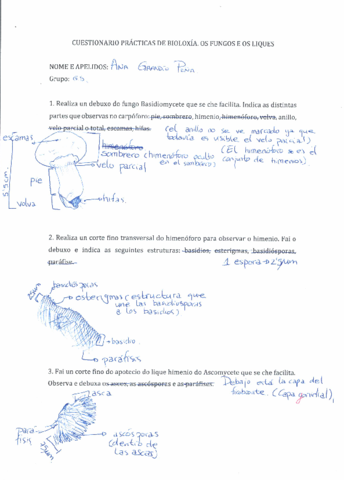 CUESTIONARIO PRÁCTICAS DE BIOLOXÍA. OS FUNGOS E OS LIQUES
NOME E APELIDOS: Ana
Grupo:
1. Realiza un debuxo do fungo Basidiomycete que se che facilita. Indica as distintas
partes que observas no carpóforo: pie, sombrero, himenio, himenóforo, volva, anillo,
velo parcial o total, escamas, hifas. (el anillo no se ve marcado ya que
todavía es visible el velo parcial)
(El himenóforo es el
conjunto de himenios)
escamas
himenóforo
sombrero (himenóforo oculto
en el sombrero)
velo parcial
5,5cm
pie
volva
hifas
2. Realiza un corte fino transversal do himenóforo para observar o himenio. Fai o
debuxo e indica as seguintes estruturas: basidios, esterigmas, basidiósporas,
paráfise.
1 espora→2μm
basidiósporas
esterigmas (estructura que
une las basidiosporas
a los basidios)
basidio
parafisis
3. Fai un corte fino do apotecio do lique himenio do Ascomycete que se che facilita.
Observa e debuxa os ascos, as ascósporas e as paráfises.
Debajo está la capa del
(Capa gonidial)
asca
para
fisis
ascósporas
(dentro de
las ascas)